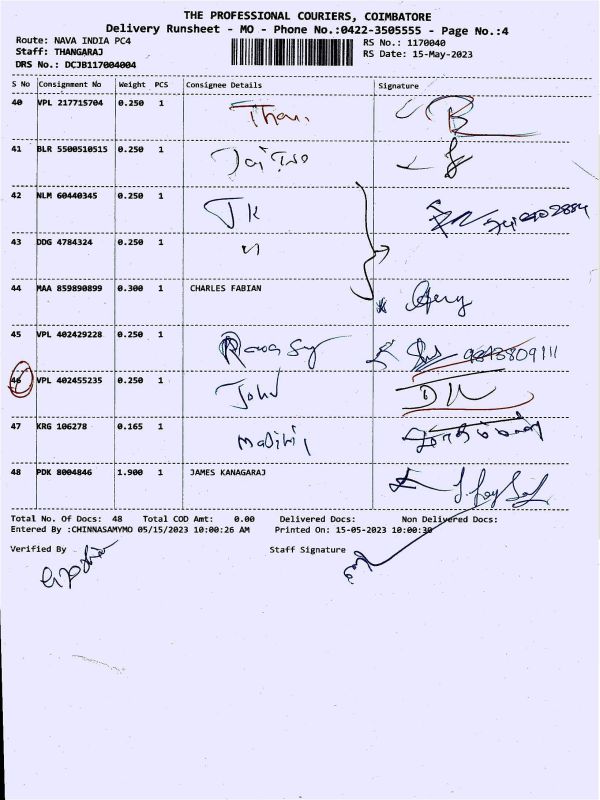 THE PROFESSIONAL COURIERS, COIMBATORE
Delivery Runsheet - MO - Phone No.:0422-3505555 - Page No.:4
Route: NAVA INDIA PC4 RS No.: 1170040
Staff: THANGARAJ RS Date: 15-May-2023
DRS No.: DCJB117004004
S No Consignment No Weight PCS Consignee Details Signature
40 VPL 217715704 0.250 1
41 BLR 5500510515 0.250 1
42 NLM 60440345 0.250 1 JK
43 DDG 4784324 0.250 1
44 MAA 859890899 0.300 1 CHARLES FABIAN
45 VPL 402429228 0.250 1 9843809111
46 VPL 402455235 0.250 1 John
47 KRG 106278 0.165 1
48 PDK 8004846 1.900 1 JAMES KANAGARAJ
Total No. Of Docs: 48 Total COD Amt: 0.00 Delivered Docs: Non Delivered Docs:
Entered By :CHINNASAMYMO 05/15/2023 10:00:26 AM Printed On: 15-05-2023 10:00:30
Verified By Staff Signature